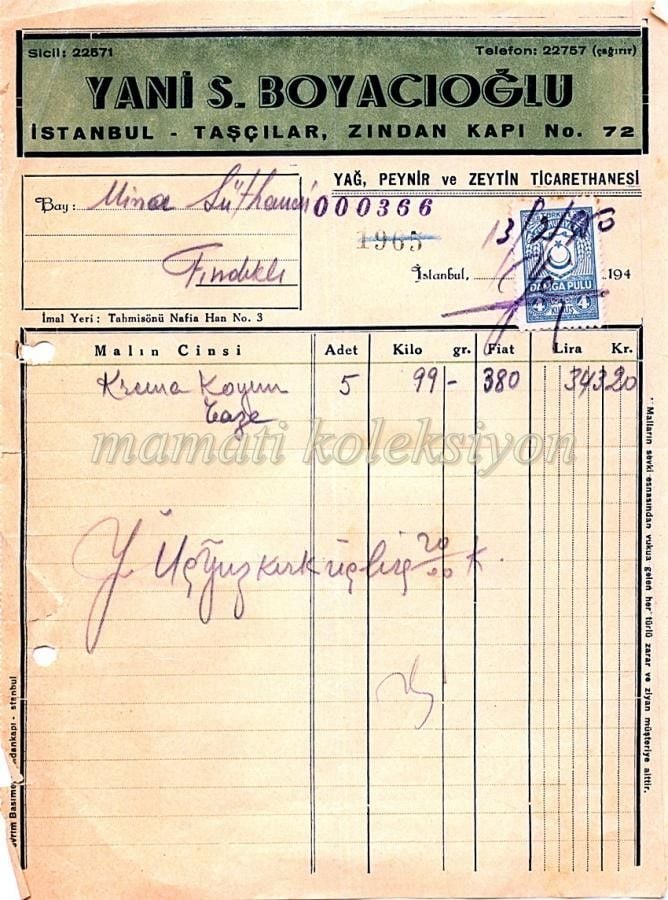 Sicil: 22571
Telefon: 22757 (çağırır)
YANİ S. BOYACIOĞLU
İSTANBUL - TAŞÇILAR, ZINDAN KAPI No. 72
YAĞ, PEYNİR ve ZEYTİN TİCARETHANESİ
Bay: Mina Süthanesi
Fındıklı
000366
1965
İstanbul, 194
DAMGA PULU
4 4
İmal Yeri : Tahmisönü Nafia Han No. 3
Malın Cinsi Adet Kilo gr. Fiat Lira Kr.
Krema Koyun 5 99- 380 343 20
Taze
mamati koleksiyon
Üçyüzkırküçlira 20/00 K.
Malların sevki esnasından vukua gelen her türlü zarar ve ziyan müşteriye aittir.